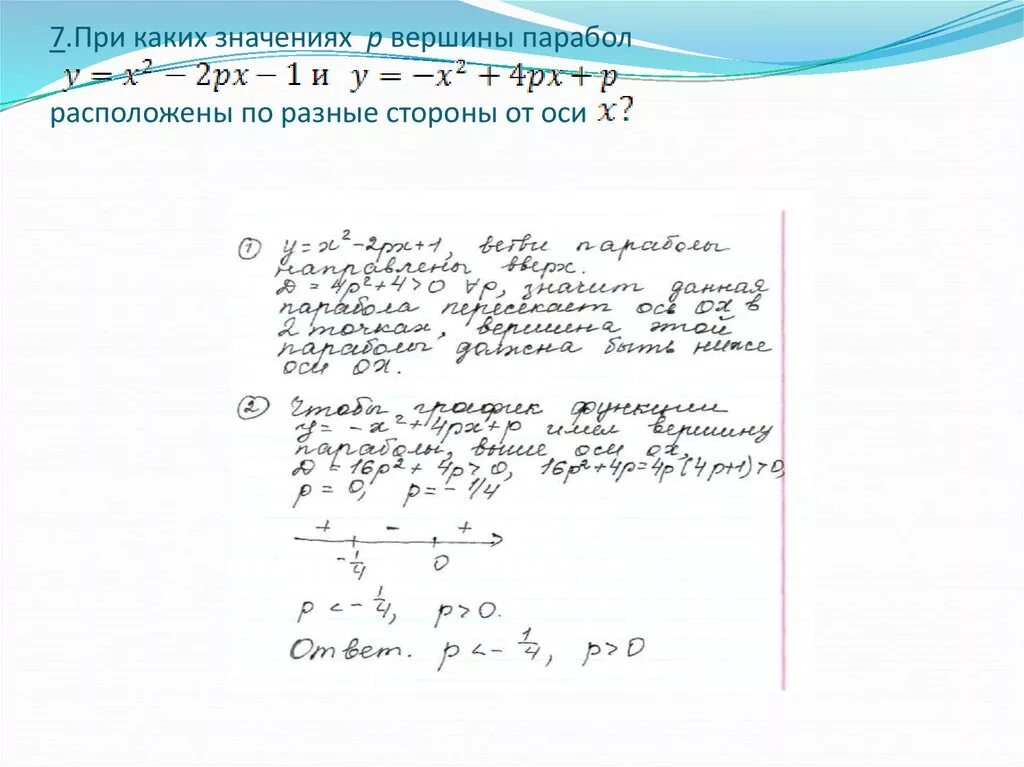 7.При каких значениях p вершины парабол
y = x² − 2px − 1 и y = −x² + 4px + p
расположены по разные стороны от оси x?
① y = x² - 2px + 1, ветви параболы
направлены вверх.
D = 4p² + 4 > 0 ∀p, значит данная
парабола пересекает ось OX в
2 точках, вершина этой
параболы должна быть ниже
оси OX.
② Чтобы график функции
y = -x² + 4px + p имел вершину
параболы, выше оси OX,
D = 16p² + 4p > 0, 16p² + 4p = 4p (4p+1) > 0,
p = 0, p = - 1/4
+ - +
-1/4 0
p < - 1/4, p > 0.
Ответ. p < - 1/4, p > 0